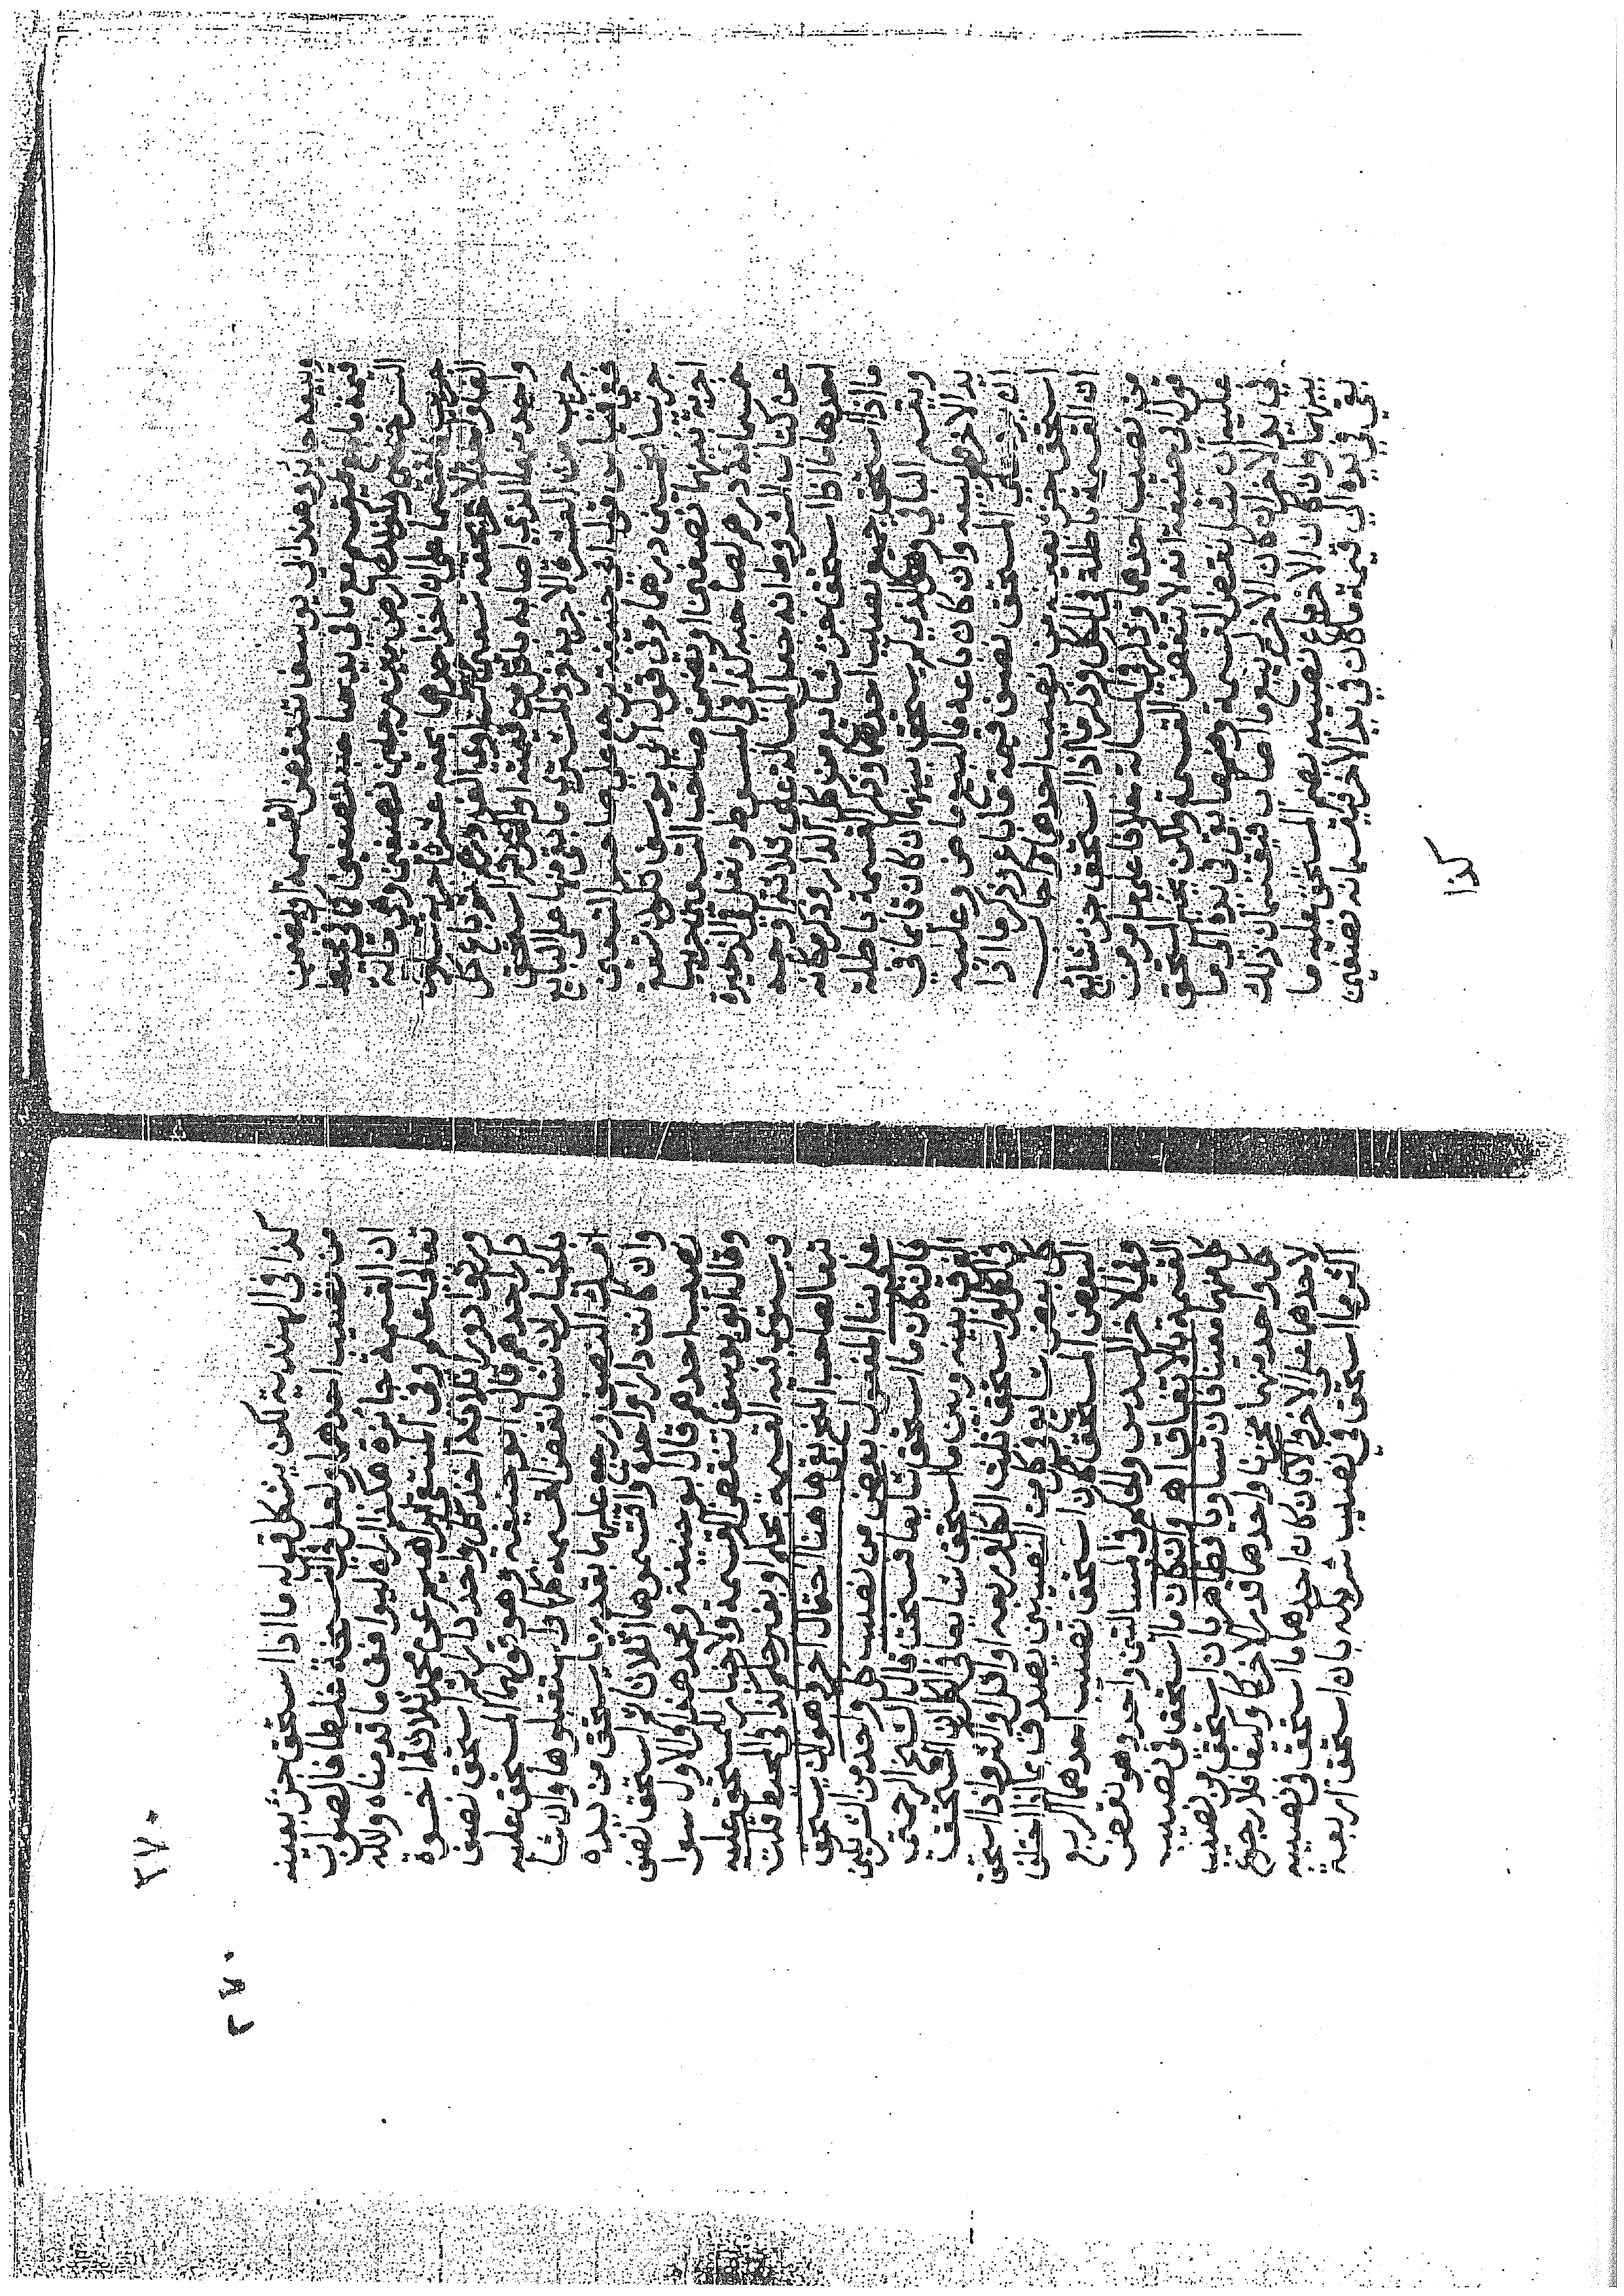 وبيعه جائز وعند ابي يوسف تنتقض القسمة ويضمن
قيمة ما باع فيقسم مع ما في يد صاحبه نصفين كذا في محيط
السرخسي وكذلك ارض بينهما نصفين وهي مائة
جريب اقتسماها على ان اخذ احدهما بحقه عشرة اجربة تساوي
الفا واخذ الاخر بحقه تسعين تساوي الف درهم ثم باع كل
واحد منهما الذي اصابه باقل من قيمته او اكثر ثم استحق
جريب من العشرة الاجربة ورد المشتري ما بقي منها على البائع
ففي قياس قول ابي حنيفة يرجع على صاحب التسعين
جريبا بخمسين درهما وفي قول ابي يوسف تكون تسعة
اجربة بينهما نصفين ويضمن صاحب التسعين جريبا
خمسمائة درهم لصاحبه كذا في المبسوط ونقل في الذخيرة
عن كتاب الشروط انه جعل المسالة على ثلاثة اوجه
احدها اذا استحق جزء شائع من كل الدار وذكر مكانه
ما اذا استحق جميع نصيب احدهما وذكر القسمة باطلة
ويقسم الباقي وهو الذي لم يستحق بينهما ان كان قائما في
يد الاخر لم يبعه وان كان باعه فالبيع ماض وعليه
ان يرد على المستحق نصف قيمة ما باع وذكر ما اذا
استحق جزء بعينه من نصيب احدهما واجاب
ان القسمة باطلة في الكل وذكر ما اذا استحق جزء شائع
من نصيب احدهما وذكر في المسالة خلافا على ما مر من
قول ابي حنيفة انه لا تنتقض القسمة ولكن يخير المستحق
عليه ان شاء نقض القسمة وضم ما بقي في يده الى ما
في يد الاخر ان كان الاخر لم يبع ما اصاب فيقتسمان ذلك
بينهما وان كان الاخر باع نصيبه يضم المستحق عليه ما
بقي في يده الى قيمة ما كان في يد الاخر فيقتسمانه نصفين
كذا
٢٧٠
٢٧٠
كذا في الهندية لكن يشكل قوله ما اذا استحق جزء بعينه
من نصيب احدهما ولعل في النسخة غلطا فالصواب
ان القسمة جائزة هكذا اراه ليوافق ما قدمناه والله
تعالى اعلم وفي المنتقى ابراهيم عن محمد ثلاثة اخوة
ورثوا دورا ثلاثة اخذ كل واحد دارا ثم استحق نصف
دار احدهم قال ابو حنيفة وهو قولهما المستحق عليه
بالخيار ان شاء نقض القسمة كلها واستقبلوها وان شاء
امسك النصف ورجع عليهما بقدر ما يستحق من يده
وان كانت دارا واحدة واقتسموها اثلاثا ثم استحق نصف
نصيب احدهم قال ابو حنيفة ومحمد هذا والاول سوا
وقال ابو يوسف تنتقض القسمة ولا خيار للمستحق عليه
ويستوي فيه القسمة بحكم او بغير حكم كذا في المحيط قلت
تبعا لصاحب المنح بقي هاهنا احتمال اخر وهو ان يستحق
بعض من نصيب كل واحد من الشريكين
فان كان ما استحق شائعا فسخت قال الشيخ الرحمتي
الفرق بينه وبين ما استحق شائعا في الكل ان المستحق
في الكل لو استحق ثلث الكل او ربعه او اقل او اكثر واذا استحق
من بعض شائع في كل من النصيبين يصدق بما اذا اختلف
البعض المستحق بان استحق نصيب احدهما الربع
وفي الاخر السدس والحكم في المسالتين واحد وهو نقض
القسمة بالاتفاق اهـ وان كان ما استحق في نصيب
كل منهما معينا فان تساويا فظاهر بان استحق من نصيب
كل واحد منهما معينا واحدهما قدر الاخر كما وكيفا فلا رجوع
لاحدهما على الاخر والا بان كان احدهما استحق في نصيبه
اكثر مما استحق في نصيب شريكه بان استحق اربعة